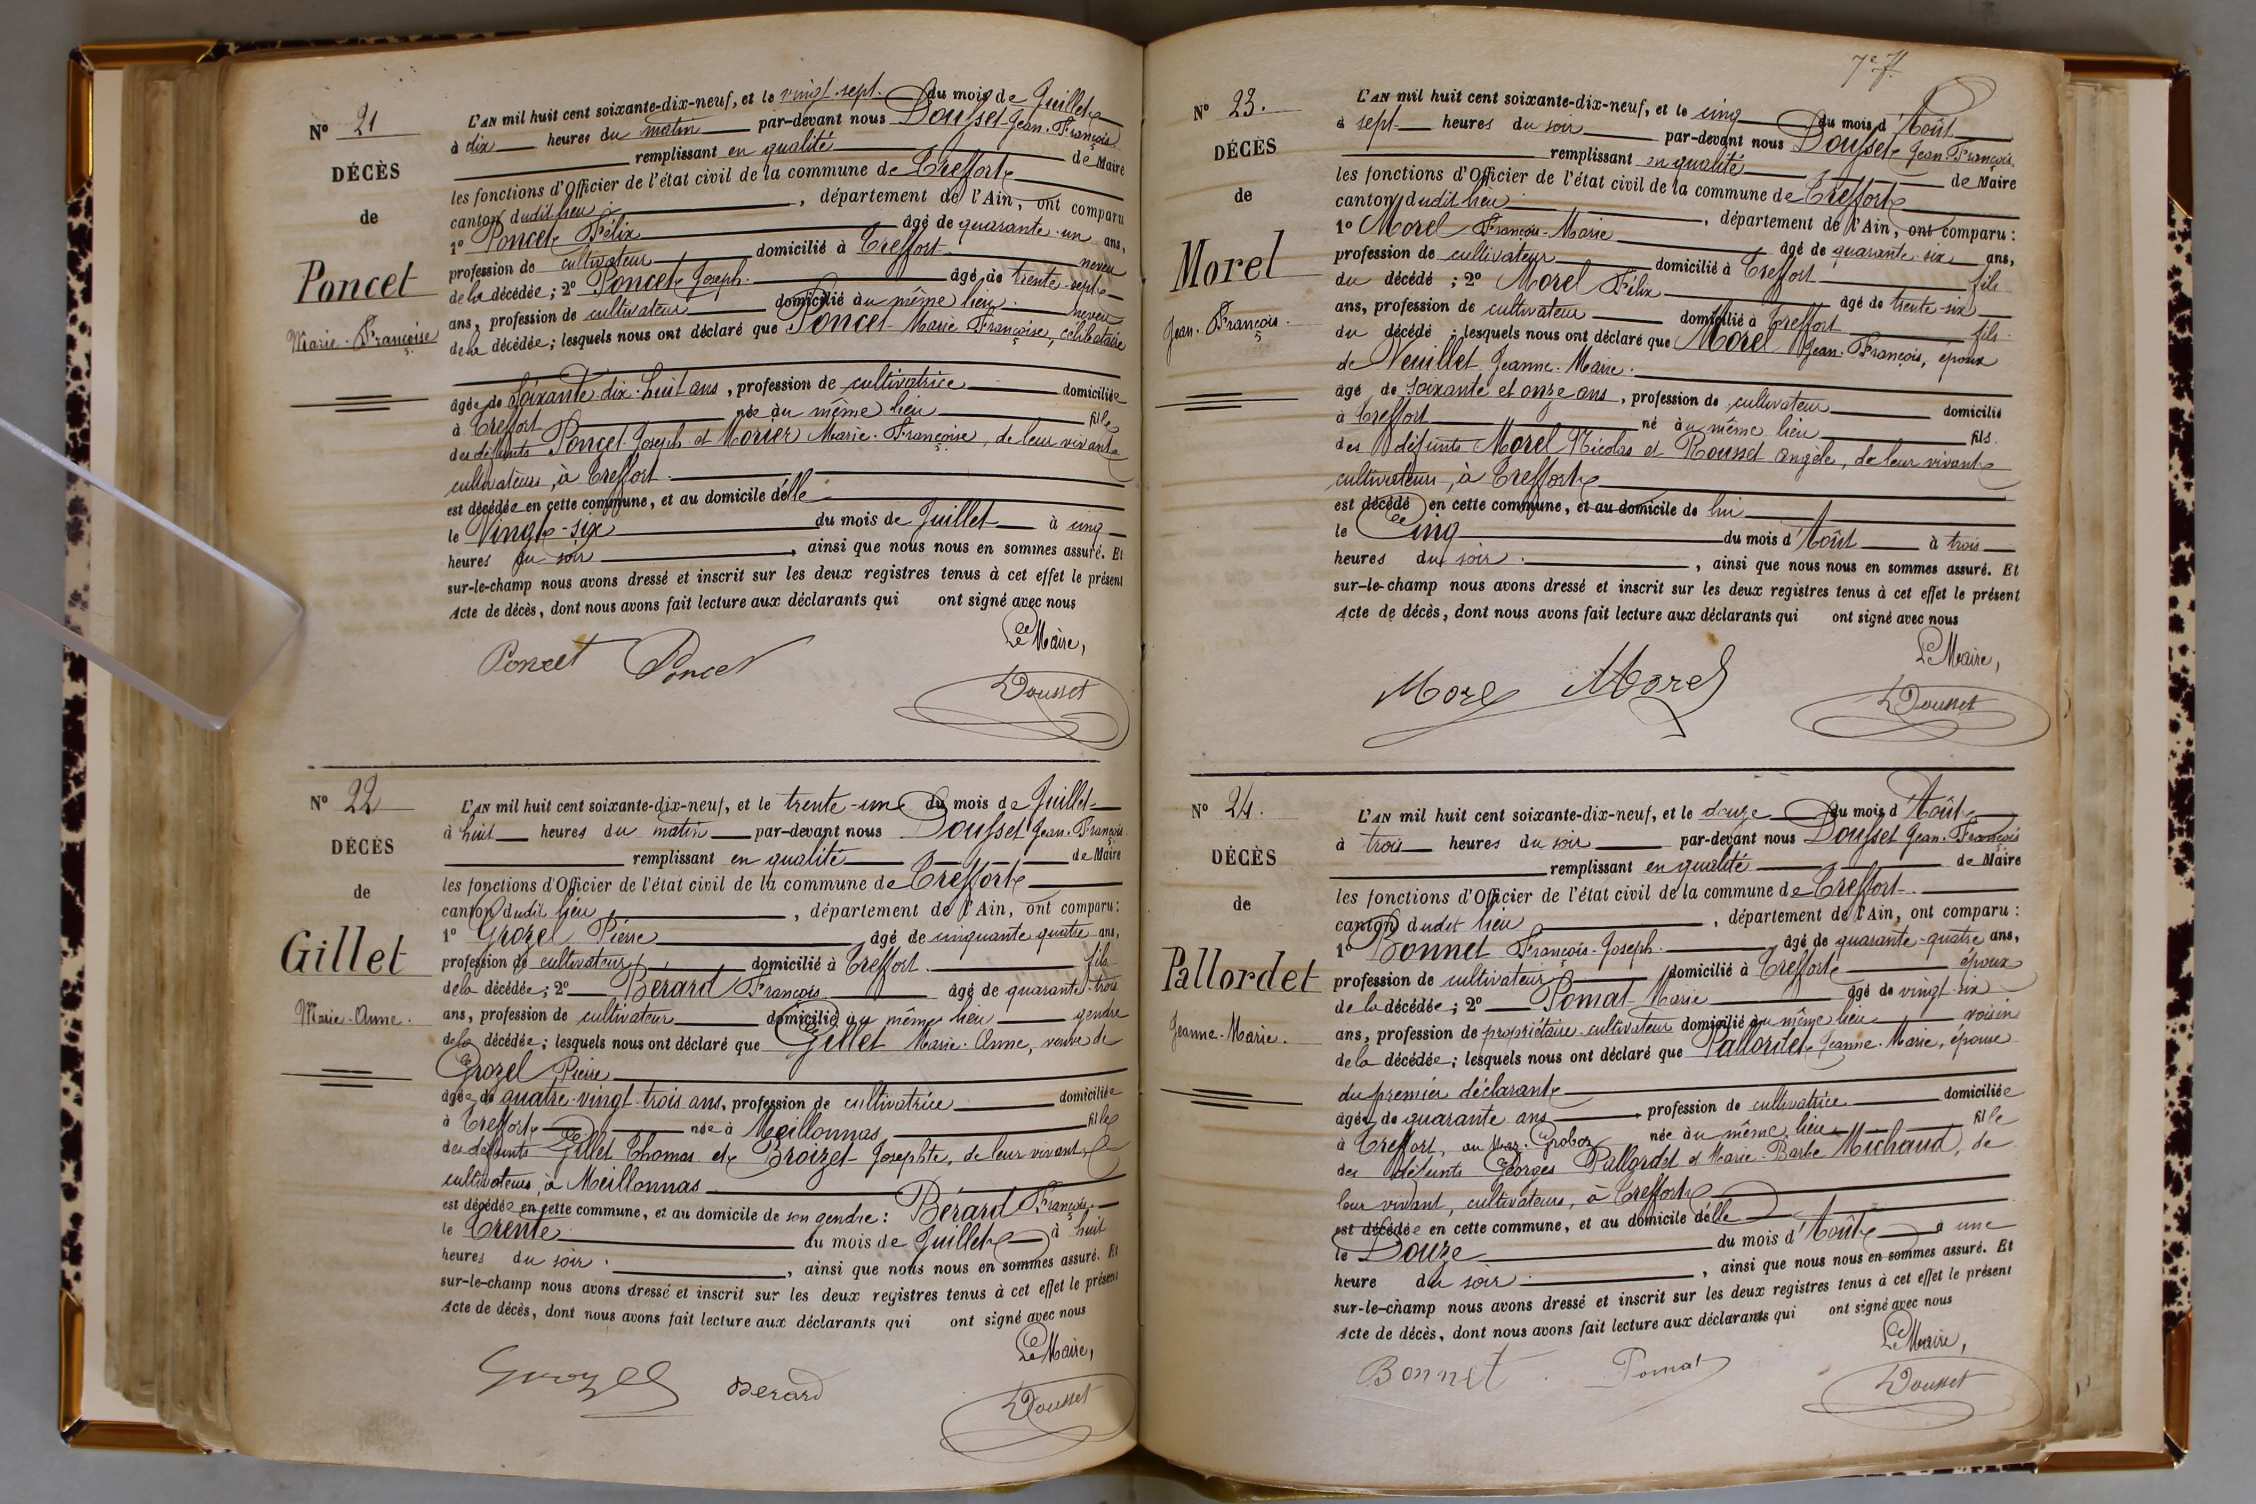 Nº 21
DÉCÈS
de
Poncet
Marie-Françoise
L'AN mil huit cent soixante-dix-neuf, et le vingt-sept du mois de Juillet
à dix heures du matin par-devant nous Dousset Jean-François
remplissant en qualité de Maire
les fonctions d'Officier de l'état civil de la commune de Treffort
canton dudit lieu, département de l'Ain, ont comparu
1º Poncet Félix âgé de quarante-un ans,
profession de cultivateur domicilié à Treffort neveu
de la décédée; 2º Poncet Joseph âgé de trente-sept
ans, profession de cultivateur domicilié au même lieu neveu
de la décédée; lesquels nous ont déclaré que Poncet Marie Françoise, célibataire
âgée de soixante dix-huit ans, profession de cultivatrice domiciliée
à Treffort née au même lieu fille
des défunts Poncet Joseph et Morier Marie-Françoise, de leur vivant
cultivateurs, à Treffort
est décédée en cette commune, et au domicile d'elle
le Vingt-six du mois de Juillet à cinq
heures du soir, ainsi que nous nous en sommes assuré. Et
sur-le-champ nous avons dressé et inscrit sur les deux registres tenus à cet effet le présent
Acte de décès, dont nous avons fait lecture aux déclarants qui ont signé avec nous
Le Maire,
Poncet Poncet
Dousset
Nº 22
DÉCÈS
de
Gillet
Marie-Anne.
L'AN mil huit cent soixante-dix-neuf, et le trente-un du mois de Juillet
à huit heures du matin par-devant nous Dousset Jean-François
remplissant en qualité de Maire
les fonctions d'Officier de l'état civil de la commune de Treffort
canton dudit lieu, département de l'Ain, ont comparu:
1º Grozel Pierre âgé de cinquante quatre ans,
profession de cultivateur domicilié à Treffort fils
de la décédée; 2º Bérard François âgé de quarante-trois
ans, profession de cultivateur domicilié au même lieu gendre
de la décédée; lesquels nous ont déclaré que Gillet Marie-Anne, veuve de
Grozel Pierre
âgée de quatre-vingt-trois ans, profession de cultivatrice domiciliée
à Treffort née à Meillonnas fille
des défunts Gillet Thomas et Broizet Josephte, de leur vivant
cultivateurs, à Meillonnas
est décédée en cette commune, et au domicile de son gendre: Bérard François
le Trente du mois de Juillet à huit
heures du soir, ainsi que nous nous en sommes assuré. Et
sur-le-champ nous avons dressé et inscrit sur les deux registres tenus à cet effet le présent
Acte de décès, dont nous avons fait lecture aux déclarants qui ont signé avec nous
Le Maire,
Grozel Berard
Dousset
Nº 23.
DÉCÈS
de
Morel
Jean-François.
L'AN mil huit cent soixante-dix-neuf, et le cinq du mois d'Août
à sept heures du soir par-devant nous Dousset Jean-François
remplissant en qualité de Maire
les fonctions d'Officier de l'état civil de la commune de Treffort
canton dudit lieu, département de l'Ain, ont comparu:
1º Morel François-Marie âgé de quarante-six ans,
profession de cultivateur domicilié à Treffort fils
du décédé; 2º Morel Félix âgé de trente-six
ans, profession de cultivateur domicilié à Treffort fils
du décédé; lesquels nous ont déclaré que Morel Jean-François, époux
de Neuillet Jeanne-Marie.
âgé de soixante et onze ans, profession de cultivateur domicilié
à Treffort né au même lieu fils
des défunts Morel Nicolas et Rousset Angèle, de leur vivant
cultivateurs, à Treffort
est décédé en cette commune, et au domicile de lui
le Cinq du mois d'Août à trois
heures du soir, ainsi que nous nous en sommes assuré. Et
sur-le-champ nous avons dressé et inscrit sur les deux registres tenus à cet effet le présent
Acte de décès, dont nous avons fait lecture aux déclarants qui ont signé avec nous
Le Maire,
Morel Morel
Dousset
Nº 24.
DÉCÈS
de
Pallordet
Jeanne-Marie.
L'AN mil huit cent soixante-dix-neuf, et le douze du mois d'Août
à trois heures du soir par-devant nous Dousset Jean-François
remplissant en qualité de Maire
les fonctions d'Officier de l'état civil de la commune de Treffort
canton dudit lieu, département de l'Ain, ont comparu:
1º Bonnet François-Joseph âgé de quarante-quatre ans,
profession de cultivateur domicilié à Treffort époux
de la décédée; 2º Pomat Marie âgé de vingt-six
ans, profession de propriétaire-cultivateur domicilié au même lieu voisin
de la décédée; lesquels nous ont déclaré que Pallordet Jeanne-Marie, épouse
du premier déclarant
âgée de quarante ans, profession de cultivatrice domiciliée
à Treffort, au née au même lieu fille
des défunts Georges Pallordet et Marie-Barbe Michaud, de
leur vivant, cultivateurs, à Treffort
est décédée en cette commune, et au domicile d'elle
le Douze du mois d'Août à une
heure du soir, ainsi que nous nous en sommes assuré. Et
sur-le-champ nous avons dressé et inscrit sur les deux registres tenus à cet effet le présent
Acte de décès, dont nous avons fait lecture aux déclarants qui ont signé avec nous
Le Maire,
Bonnet Pomat
Dousset